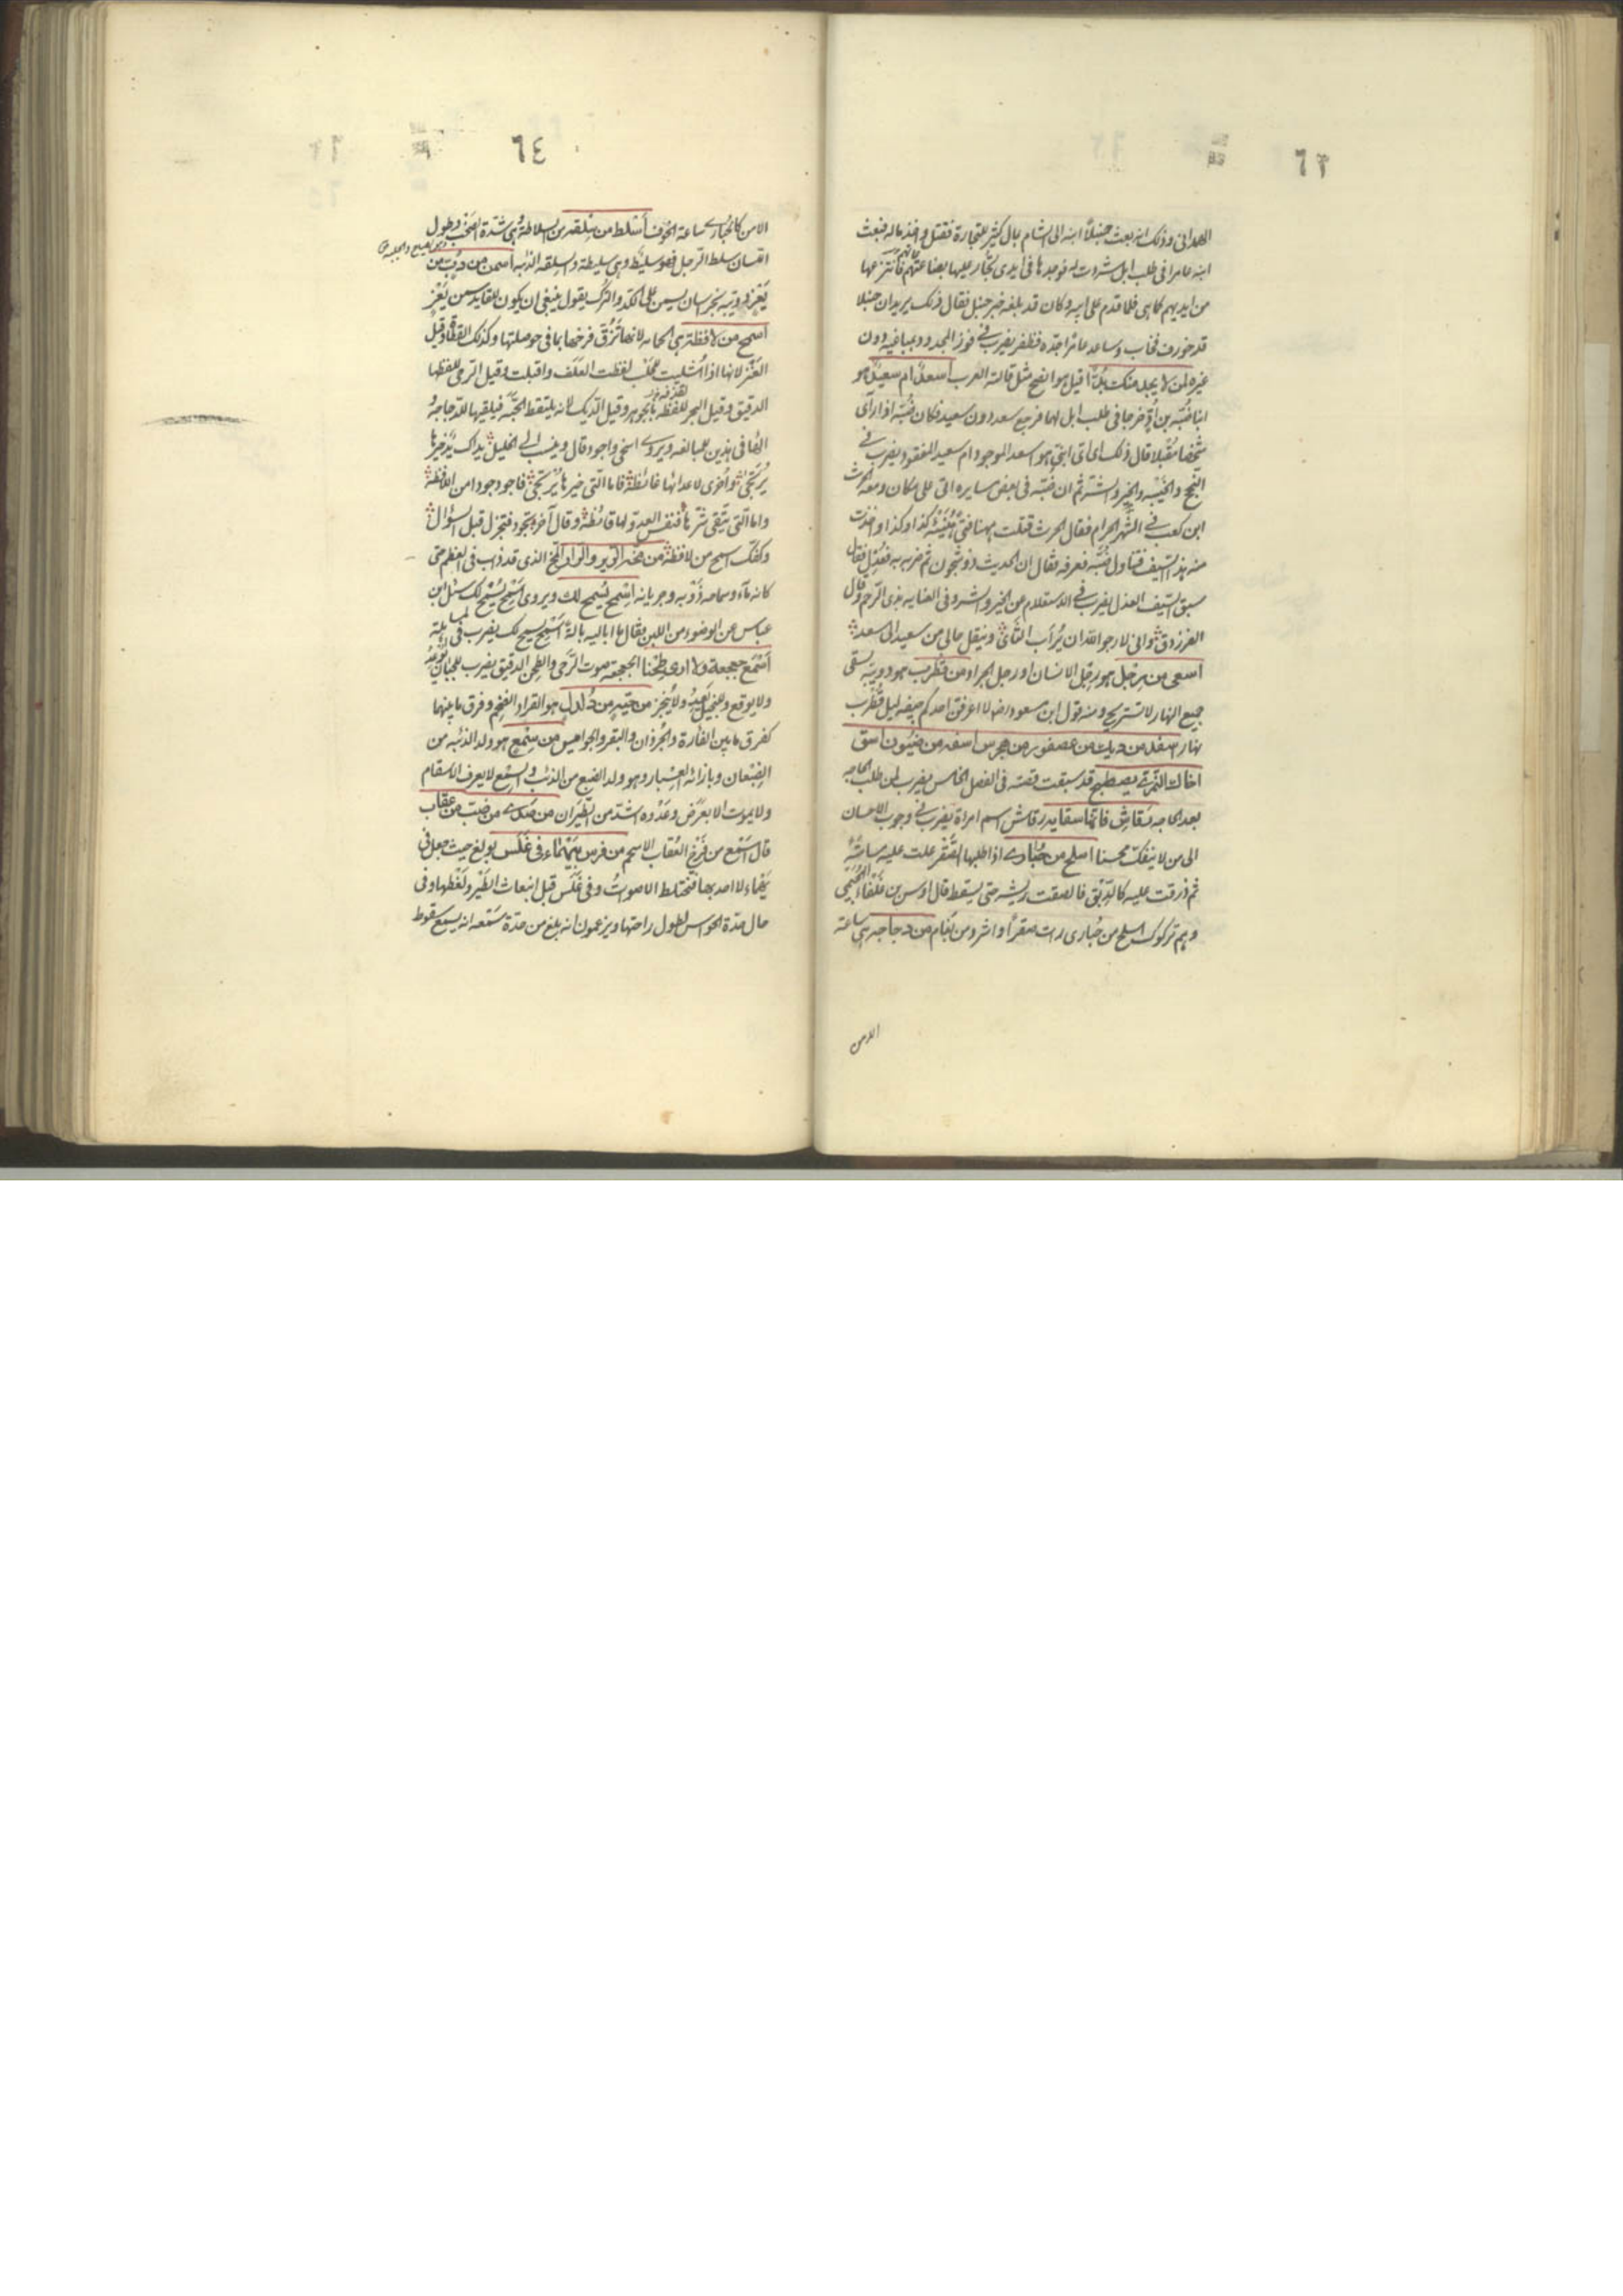 ٦٣
الهمداني وذلك انه بعث حنبلا ابنه الى الشام بمال كثير للتجارة فقتل واخذ ماله فبعث
ابنه عامرا في طلب ابل شردت له فوجدها في ايدي تجار عليها بضاعتهم فانتزعها
من ايديهم كما هي فلما قدم على ابيه وكان قد بلغه خبر حنبل فقال ذلك يريد ان حنبلا
قد فخاب وساعد عامرا جده فظفر يضرب في فوز المجدود بمباغيه دون
غيره لمن لا يجد منك بدا قيل هو افصح مثل قالته العرب أسعد ام سعيد هو
ابنا ضبة بن اد خرجا في طلب ابل لهما فرجع سعد دون سعيد فكان ضبة اذا رأى
شخصا مقبلا قال ذلك اى اى ابنى هو اسعد الموجود ام سعيد المفقود يضرب في
النجح والخيبة والخير والشر ثم ان ضبة في بعض مسايره اتى على مكان ومعه الحرث
ابن كعب في الشهر الحرام فقال الحرث قتلت ههنا فتى هيئته كذا وكذا واخذت
منه هذا السيف فتناول ضبة فعرفه فقال ان الحديث ذو شجون ثم ضربه به فعذل فقال
سبق السيف العذل يضرب في الاستعلام عن الخير والشر وفي العناية بذى الرحم وقال
الفرزدق واني لارجو الله ان يرأب الثأى وينقل مالى من سعيد الى سعد
اسعى من رجل هو رجل الانسان او رجل الجراد من قطرب هو دويبة تسعى
جميع النهار لا تستريح ومنه قول ابن مسعود رضه لا اعرفن احدكم جيفة ليل قطرب
نهار اسفد من ديك من عصفور من هجرس اسفد من ضيون اسق
اخاك النمرى يصطبح قد سبقت قصته في الفصل الخامس يضرب لمن طلب الحاجة
بعد الحاجة رقاش فانها سقاية رقاش اسم امرأة يضرب في وجوب الاحسان
الى من لا ينفك محسنا اسلح من حبارى اذا طلبها الصقر علت عليه ساعة
ثم ذرقت عليه كالدبق فالصقت ريشه حتى يسقط قال اوس بن غلفاء الهجيمى
وهم تركوك اسلح من حبارى رأت صقرا واشرد من نعام من دجاجة هى ساعة
الامن
٦٤
الامن كالحبارى ساعة الخوف أسلط من سلقة من السلاطة وهى شدة الصخب وطول
اللسان سلط الرجل فهو سليط وهى سليطة والسلقة الذئبة اسمن من دب من
يعر دويبة بخراسان يسمن على الكد والترك يقول ينبغى ان يكون للقايد سمن يعر
اسمح من لافظة هى الحمامة لانها تزق فرخها بما في حوصلتها وكذلك القطا وقيل
العنز لانها اذا أشليت للحلب لفظت العلف واقبلت وقيل الرحى للفظها
الدقيق وقيل البحر للفظه بالجوهر وقيل الديك لانه يلتقط الحبة فيلقيها للدجاجة
الهاء في هذين للمبالغة ويروى اسخى واجود قال وينسب الى الخليل يداك يد خيرها
يرتجى واخرى لاعدائها غائظة فاما التى خيرها يرتجى فاجود جودا من اللافظة
واما التى يتقى شرها فنفس العدو لها فائظة وقال آخر تجود فتجزل قبل السؤال
وكفك اسمح من لافظة من مخة الرير والرار المخ الذى قد ذاب في العظم حتى
كانه ماء وسماحه ذوبه وجريانه اسمح يسمح لك ويروى اسمح يسمح لك سئل ابن
عباس عن الوضوء من اللبن فقال ما اباليه بالة اسمح يسمح لك يضرب في
اسمع جعجعة ولا ارى طحنا الجعجعة صوت الرحى والطحن الدقيق يضرب للجبان يوعد
ولا يوقع وللبخيل يعد ولا ينجز من حية من دلدل هو القراد الضخم وفرق ما بينهما
كفرق ما بين الفأرة والجرذان والبقر والجواميس من سمع هو ولد الذئبة من
الضبعان وبازائه العسبار وهو ولد الضبع من الذئب والسمع لا يعرف الاسقام
ولا يموت الا بعرض وعدوه اشد من الطيران من صدى من ضب من عقاب
قال اسمع من فرخ العقاب الاسحم من فرس بيهماء في غلس بولغ حيث جعل في
يهماء لا احد بها فتختلط الاصوات وفي غلس قبل انبعاث الطير ولغطها وفي
حال حدة الحواس لطول راحتها ويزعمون انه بلغ من حدة سمعه انه يسمع سقوط